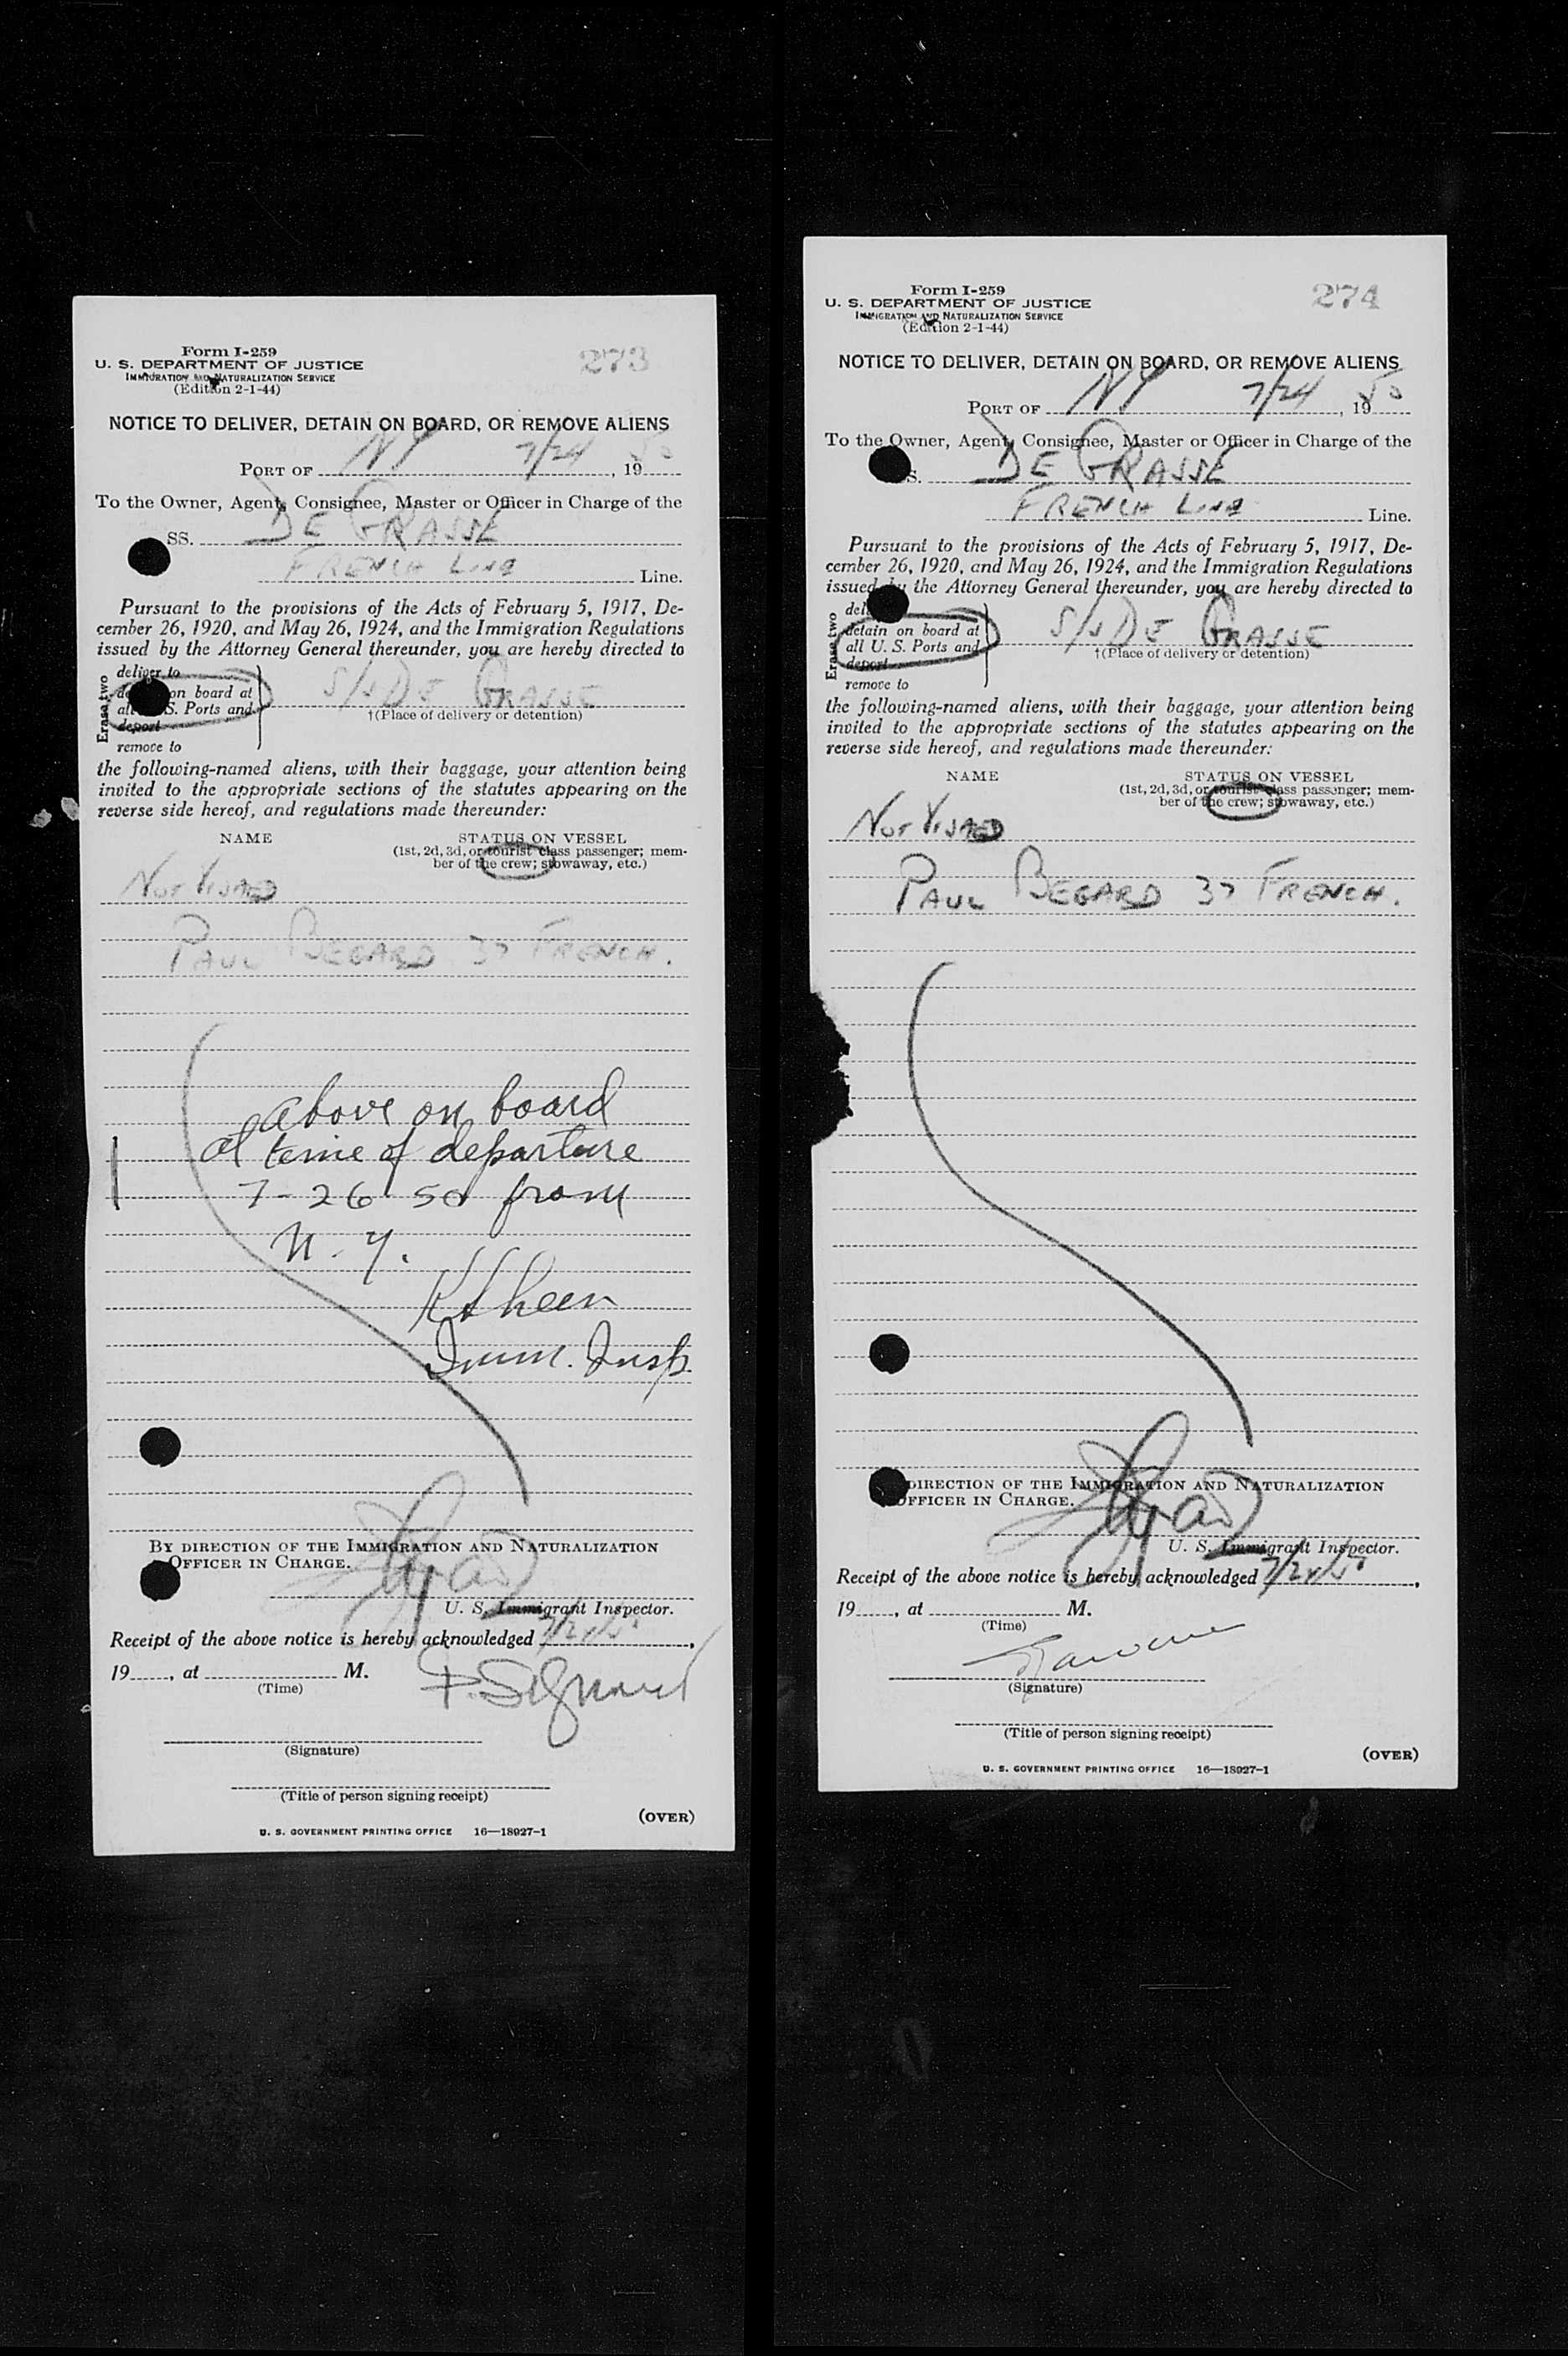 Form I-259
U. S. DEPARTMENT OF JUSTICE
IMMIGRATION AND NATURALIZATION SERVICE
(Edition 2-1-44)
273
NOTICE TO DELIVER, DETAIN ON BOARD, OR REMOVE ALIENS
PORT OF NY 7/24, 1950
To the Owner, Agent, Consignee, Master or Officer in Charge of the
SS. DE GRASSE
FRENCH LINE Line.
Pursuant to the provisions of the Acts of February 5, 1917, De-
cember 26, 1920, and May 26, 1924, and the Immigration Regulations
issued by the Attorney General thereunder, you are hereby directed to
Erase two
deliver to
on board at
S. Ports and
deport
remove to
S/S DE GRASSE
†(Place of delivery or detention)
the following-named aliens, with their baggage, your attention being
invited to the appropriate sections of the statutes appearing on the
reverse side hereof, and regulations made thereunder:
NAME STATUS ON VESSEL
(1st, 2d, 3d, or tourist class passenger; mem-
ber of the crew; stowaway, etc.)
NOT VISAED
PAUL BEGARD 37 FRENCH.
above on board
at time of departure
7-26-50 from
N.Y.
Imm. Insp.
BY DIRECTION OF THE IMMIGRATION AND NATURALIZATION
OFFICER IN CHARGE.
U. S. Immigrant Inspector.
Receipt of the above notice is hereby acknowledged 7/24/50,
19, at M.
(Time)
(Signature)
(Title of person signing receipt)
(OVER)
U. S. GOVERNMENT PRINTING OFFICE 16—18927-1
Form I-259
U. S. DEPARTMENT OF JUSTICE
IMMIGRATION AND NATURALIZATION SERVICE
(Edition 2-1-44)
274
NOTICE TO DELIVER, DETAIN ON BOARD, OR REMOVE ALIENS
PORT OF NY 7/24, 1950
To the Owner, Agent, Consignee, Master or Officer in Charge of the
S. DE GRASSE
FRENCH LINE Line.
Pursuant to the provisions of the Acts of February 5, 1917, De-
cember 26, 1920, and May 26, 1924, and the Immigration Regulations
issued by the Attorney General thereunder, you are hereby directed to
Erase two
detain on board at
all U. S. Ports and
deport
remove to
S/S DE GRASSE
†(Place of delivery or detention)
the following-named aliens, with their baggage, your attention being
invited to the appropriate sections of the statutes appearing on the
reverse side hereof, and regulations made thereunder:
NAME STATUS ON VESSEL
(1st, 2d, 3d, or tourist class passenger; mem-
ber of the crew; stowaway, etc.)
NOT VISAED
PAUL BEGARD 37 FRENCH.
DIRECTION OF THE IMMIGRATION AND NATURALIZATION
OFFICER IN CHARGE.
U. S. Immigrant Inspector.
Receipt of the above notice is hereby acknowledged 7/24/50,
19, at M.
(Time)
(Signature)
(Title of person signing receipt)
(OVER)
U. S. GOVERNMENT PRINTING OFFICE 16—18927-1